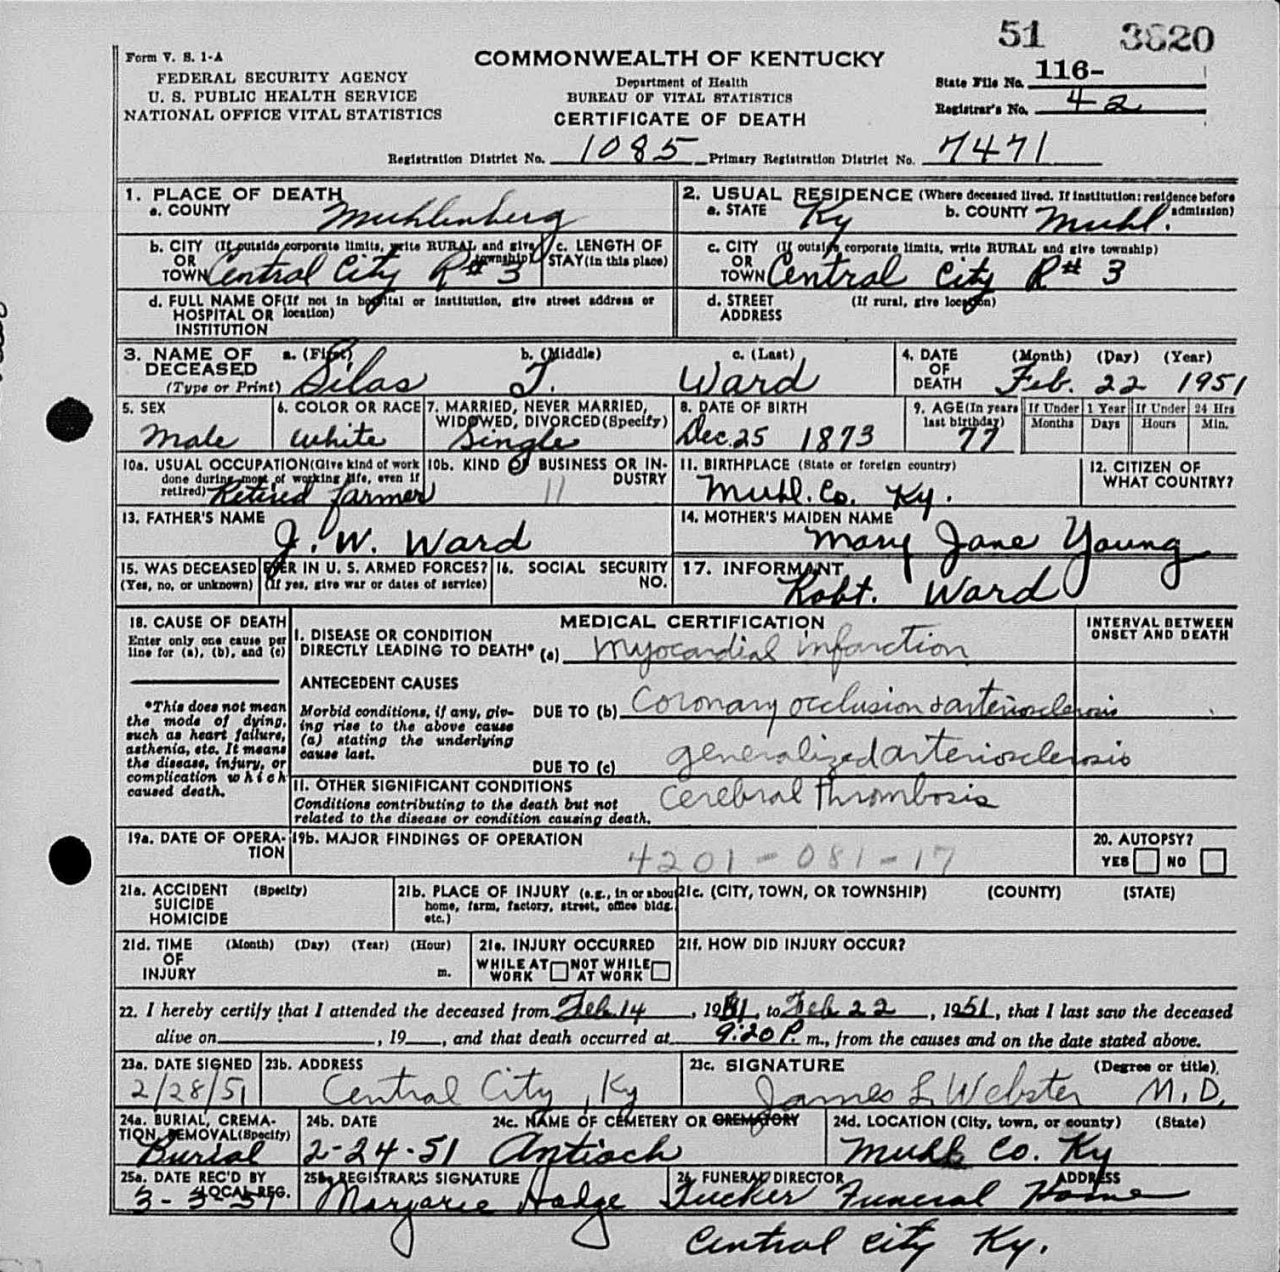 51 3820
Form V. S. 1-A
FEDERAL SECURITY AGENCY
U. S. PUBLIC HEALTH SERVICE
NATIONAL OFFICE VITAL STATISTICS
COMMONWEALTH OF KENTUCKY
Department of Health
BUREAU OF VITAL STATISTICS
CERTIFICATE OF DEATH
State File No. 116-
Registrar's No. 42
Registration District No. 1085 Primary Registration District No. 7471
1. PLACE OF DEATH
a. COUNTY Muhlenberg
2. USUAL RESIDENCE (Where deceased lived. If institution: residence before admission)
a. STATE Ky b. COUNTY Muhl.
b. CITY (If outside corporate limits, write RURAL and give township)
OR
TOWN Central City R#3
c. LENGTH OF STAY (in this place)
c. CITY (If outside corporate limits, write RURAL and give township)
OR
TOWN Central City R#3
d. FULL NAME OF (If not in hospital or institution, give street address or location)
HOSPITAL OR
INSTITUTION
d. STREET ADDRESS (If rural, give location)
3. NAME OF DECEASED (Type or Print)
a. (First) Silas b. (Middle) T. c. (Last) Ward
4. DATE OF DEATH (Month) (Day) (Year)
Feb. 22 1951
5. SEX
Male
6. COLOR OR RACE
White
7. MARRIED, NEVER MARRIED, WIDOWED, DIVORCED (Specify)
Single
8. DATE OF BIRTH
Dec. 25 1873
9. AGE (In years last birthday)
77
If Under 1 Year Months Days
If Under 24 Hrs Hours Min.
10a. USUAL OCCUPATION (Give kind of work done during most of working life, even if retired)
Retired farmer
10b. KIND OF BUSINESS OR INDUSTRY
11
11. BIRTHPLACE (State or foreign country)
Muhl. Co. Ky.
12. CITIZEN OF WHAT COUNTRY?
13. FATHER'S NAME
J. W. Ward
14. MOTHER'S MAIDEN NAME
Mary Jane Young
15. WAS DECEASED EVER IN U. S. ARMED FORCES?
(Yes, no, or unknown) (If yes, give war or dates of service)
16. SOCIAL SECURITY NO.
17. INFORMANT
Robt. Ward
18. CAUSE OF DEATH
Enter only one cause per line for (a), (b), and (c)
*This does not mean the mode of dying, such as heart failure, asthenia, etc. It means the disease, injury, or complication which caused death.
MEDICAL CERTIFICATION
INTERVAL BETWEEN ONSET AND DEATH
I. DISEASE OR CONDITION DIRECTLY LEADING TO DEATH* (a) Myocardial infarction
ANTECEDENT CAUSES
Morbid conditions, if any, giving rise to the above cause (a) stating the underlying cause last.
DUE TO (b) Coronary occlusion & arteriosclerosis
DUE TO (c) generalized arteriosclerosis
II. OTHER SIGNIFICANT CONDITIONS
Conditions contributing to the death but not related to the disease or condition causing death.
Cerebral thrombosis
19a. DATE OF OPERATION
19b. MAJOR FINDINGS OF OPERATION
4201-081-17
20. AUTOPSY?
YES NO
21a. ACCIDENT (Specify)
SUICIDE
HOMICIDE
21b. PLACE OF INJURY (e.g., in or about home, farm, factory, street, office bldg. etc.)
21c. (CITY, TOWN, OR TOWNSHIP) (COUNTY) (STATE)
21d. TIME OF INJURY (Month) (Day) (Year) (Hour) m.
21e. INJURY OCCURRED
WHILE AT WORK NOT WHILE AT WORK
21f. HOW DID INJURY OCCUR?
22. I hereby certify that I attended the deceased from Feb. 14, 1951, to Feb 22, 1951, that I last saw the deceased
alive on , 19 , and that death occurred at 9:20 P. m., from the causes and on the date stated above.
23a. DATE SIGNED
2/28/51
23b. ADDRESS
Central City, Ky
23c. SIGNATURE (Degree or title)
James L Webster M.D.
24a. BURIAL, CREMATION, REMOVAL (Specify)
Burial
24b. DATE
2-24-51
24c. NAME OF CEMETERY OR CREMATORY
Antioch
24d. LOCATION (City, town, or county) (State)
Muhl Co. Ky
25a. DATE REC'D BY LOCAL REG.
3-3-51
25b. REGISTRAR'S SIGNATURE
Marjorie Hodge
26. FUNERAL DIRECTOR ADDRESS
Tucker Funeral Home
Central City Ky.